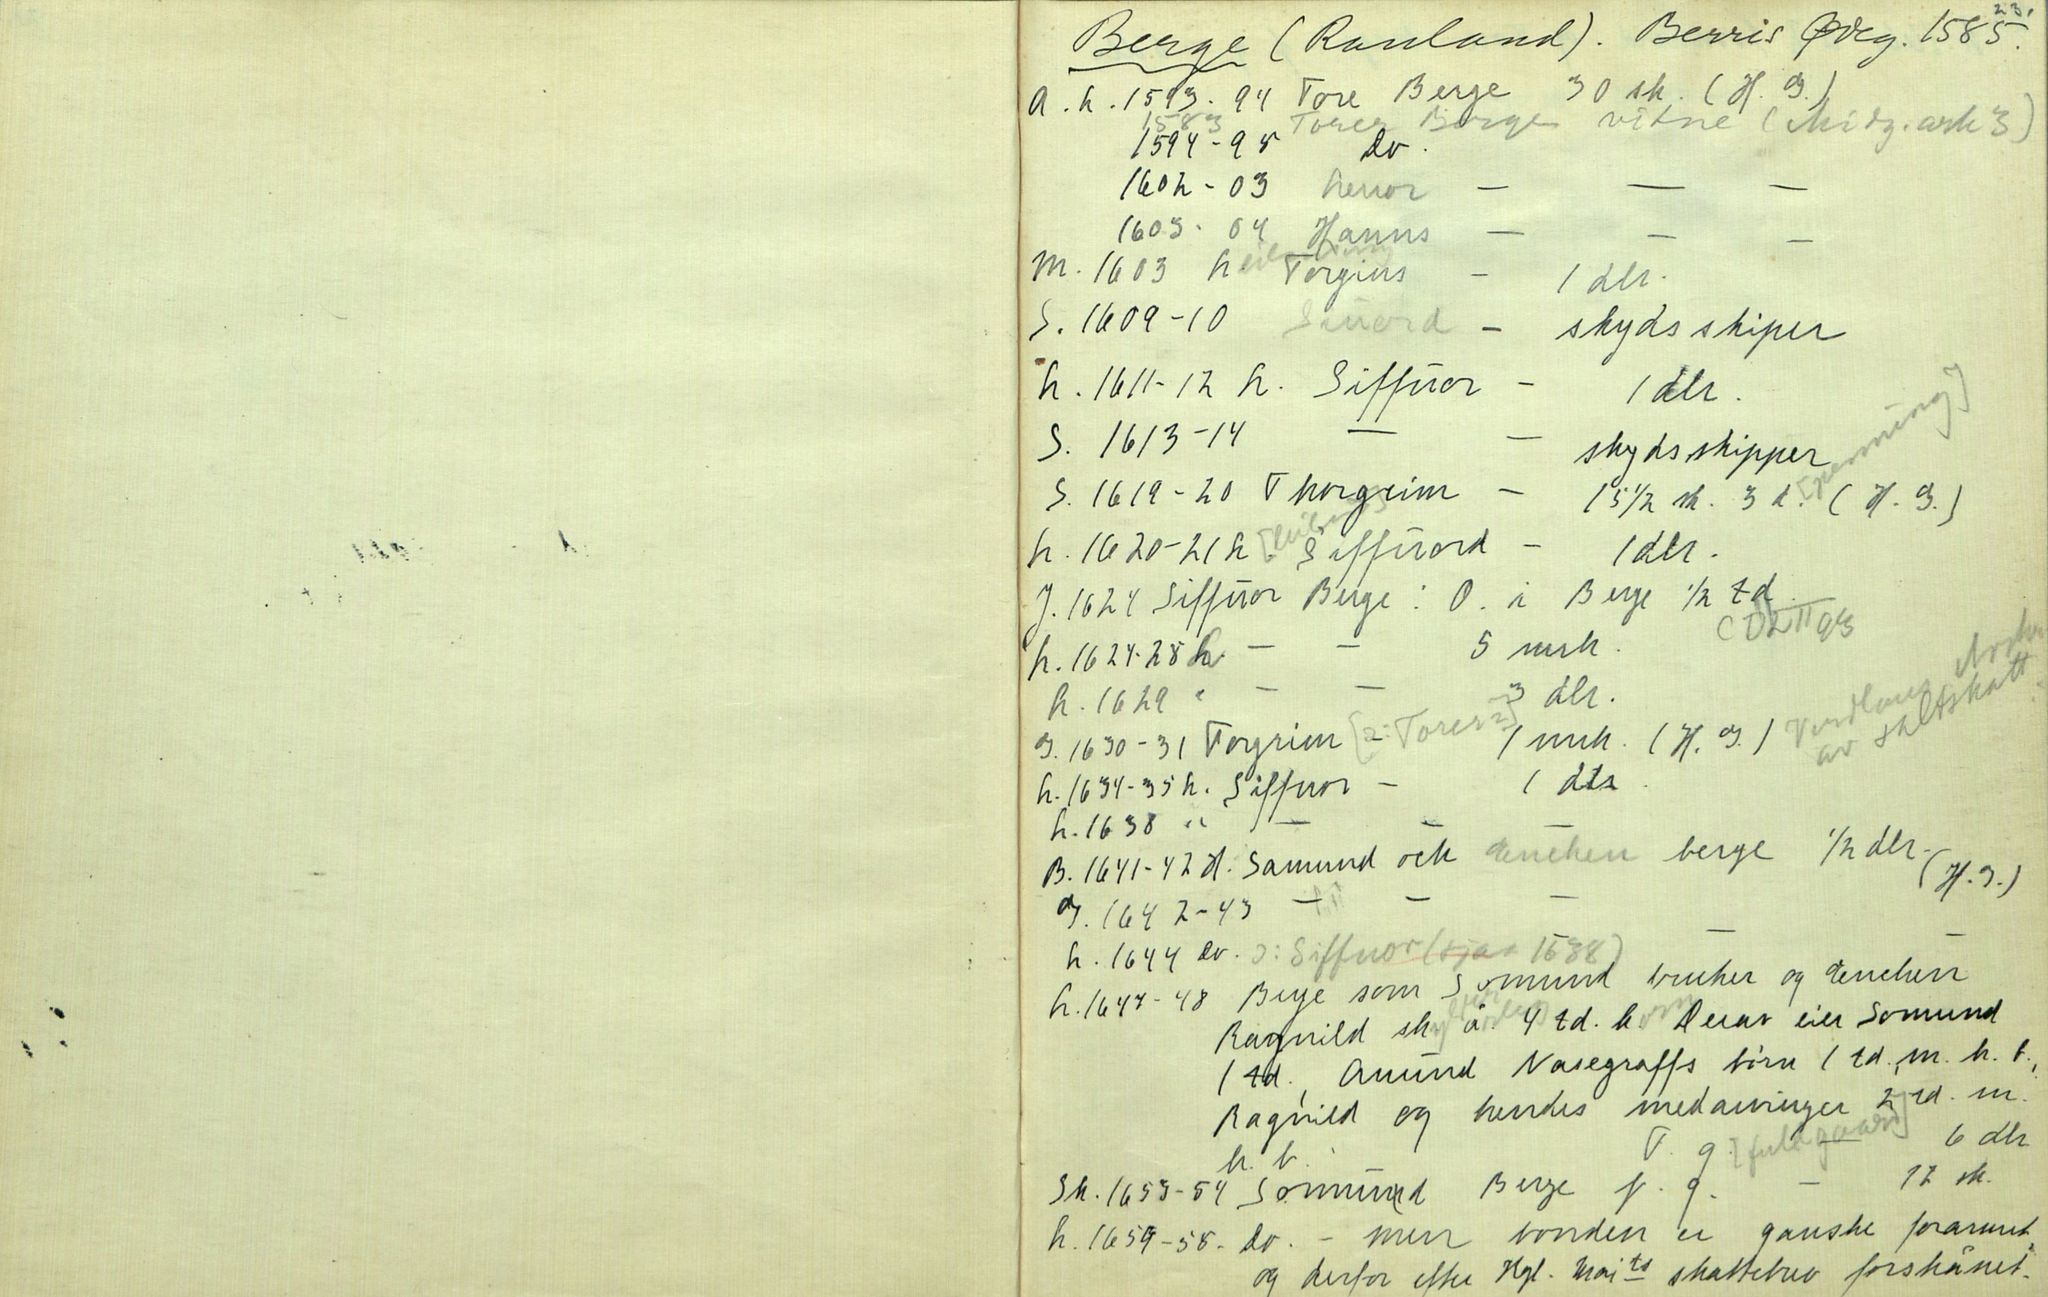 23.
Berge (Rauland). Berris Ødeg. 1585.
A. h. 1593-94 Tore Berge 30 sk. (H. G.)
1583 Torer Berge vitne
1594-95 Do.
1602-03 — — —
1603-04 Hanns — — —
M. 1603 h. Torgius — 1 dlr.
S. 1609-10 Siuord — skyds skiper
h. 1611-12 h. Siffuor — 1 dlr.
S. 1613-14 — — skydsskipper
S. 1619-20 Thorgrim — 15 1/2 sk. 3 d. [penning] (H. G.)
h. 1620-21 h. Siffuord — 1 dlr.
J. 1624 Siffuor Berge: O. i Berge 1/2 td.
h. 1624-28 h. — — 5 mrk.
h. 1629 " — — 3 dlr.
G. 1630-31 Torgrim [ɔ: Torer?] — 1 mrk. (H. G.)
av skattskatt
h. 1634-35 h. Siffuor — 1 dlr.
h. 1638 " — — —
B. 1641-42 H. Samund och enchen berge 1/2 dlr. (H. G.)
G. 1642-43 — — — — —
h. 1644 Do. ɔ: Siffuor (sjaa 1638)
h. 1647-48 Berge som Somund bruker og enchen
Ragnild sk å. 4 td. k. Derav eier Somund
1 td., Amund Nasegraffs børn 1 td. m. h. b.,
Ragnild og hendes medarvinger 2 td. m.
h. b. F. g. [fuldgaard] — 6 dlr
Sk. 1653-54 Somund Berge f. g. — 12 sk.
h. 1657-58. Do. - men bonden er ganske forarmet
og derfor efter Kgl. Maits skattebrev forskånet.